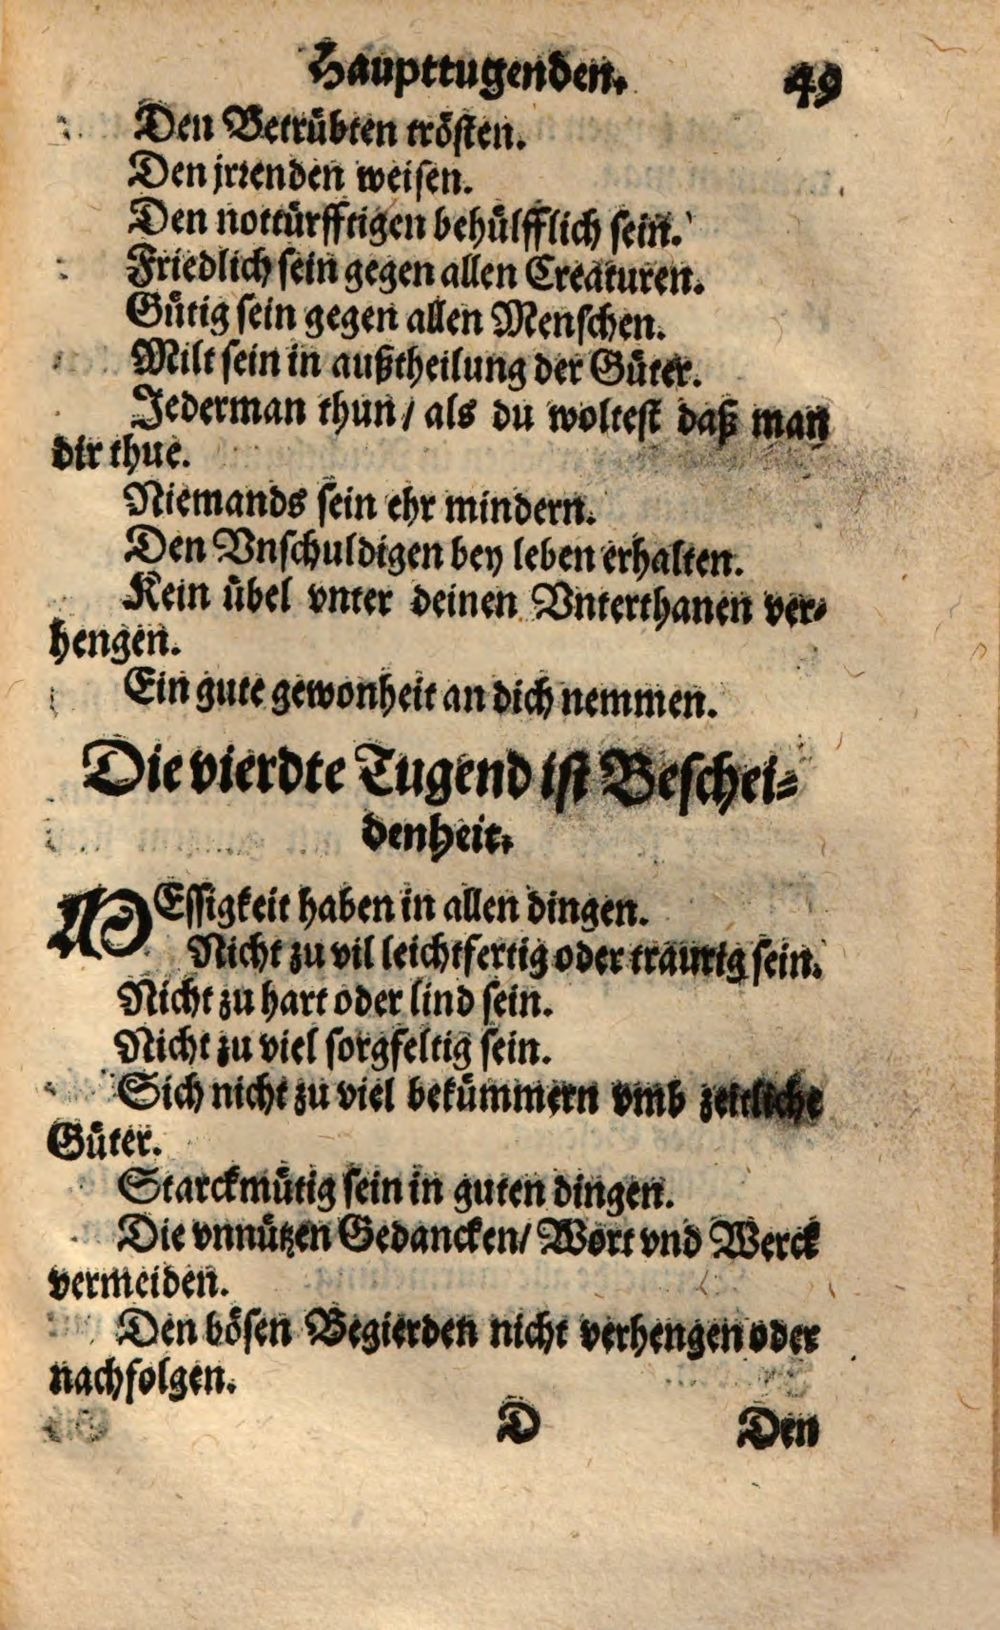 Haupttugenden. 49
Den Betrübten trösten.
Den jrrenden weisen.
Den nottürfftigen behülfflich sein.
Friedlich sein gegen allen Creaturen.
Gütig sein gegen allen Menschen.
Milt sein in außtheilung der Güter.
Jederman thun / als du woltest daß man
dir thue.
Niemands sein ehr mindern.
Den Vnschuldigen bey leben erhalten.
Kein übel vnter deinen Vnterthanen ver-
hengen.
Ein gute gewonheit an dich nemmen.
Die vierdte Tugend ist Beschei-
denheit.
MEssigkeit haben in allen dingen.
Nicht zu vil leichtfertig oder traurig sein.
Nicht zu hart oder lind sein.
Nicht zu viel sorgfeltig sein.
Sich nicht zu viel bekümmern vmb zeitliche
Güter.
Starckmütig sein in guten dingen.
Die vnnützen Gedancken / Wort vnd Werck
vermeiden.
Den bösen Begierden nicht verhengen oder
nachfolgen.
D Den